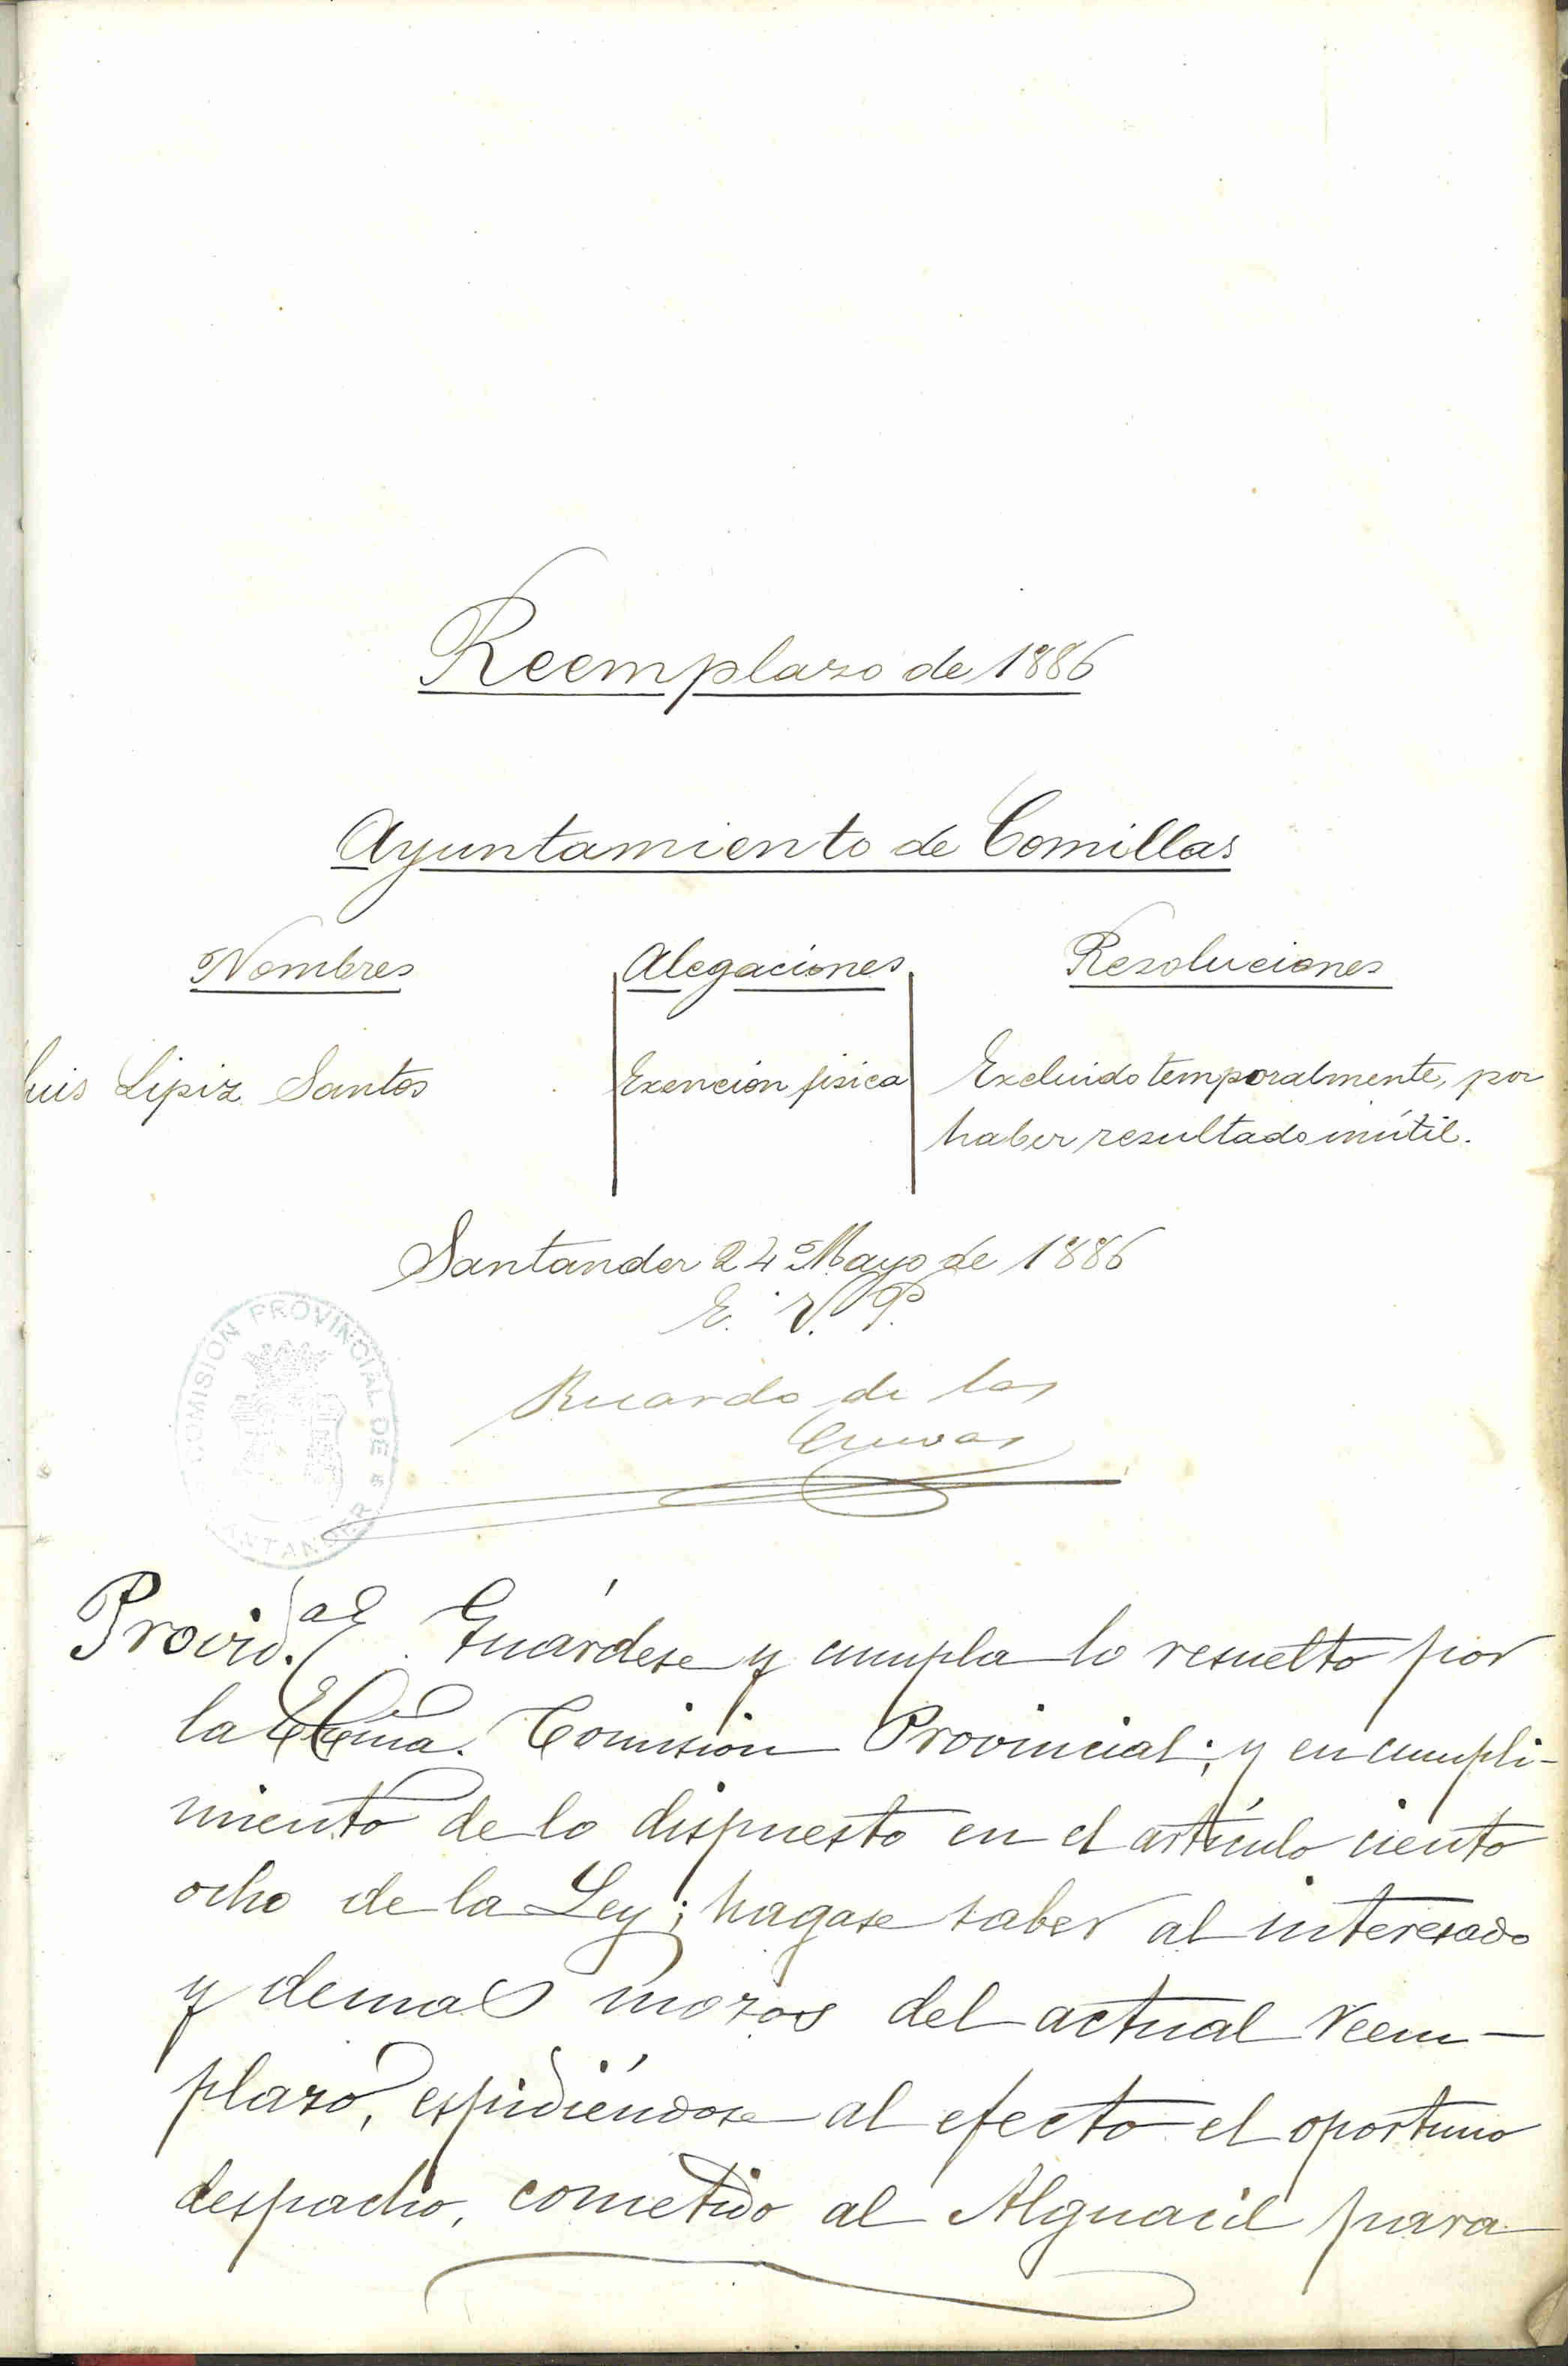 Reemplazo de 1886
Ayuntamiento de Comillas
Nombres Alegaciones Resoluciones
Luis Lipiz Santos Exencion fisica Excluido temporalmente, por
haber resultado inútil.
Santander 24 Mayo de 1886
E. V. P.
Ricardo de las
Cuevas
COMISION PROVINCIAL DE SANTANDER
Provid.ª Guárdese y cumpla lo resuelto por
la Comision Provincial; y en cumpli-
miento de lo dispuesto en el artículo ciento
ocho de la Ley; hagase saber al interesado
y demas mozos del actual reem-
plazo, espidiéndose al efecto el oportuno
despacho, cometido al Alguacil para